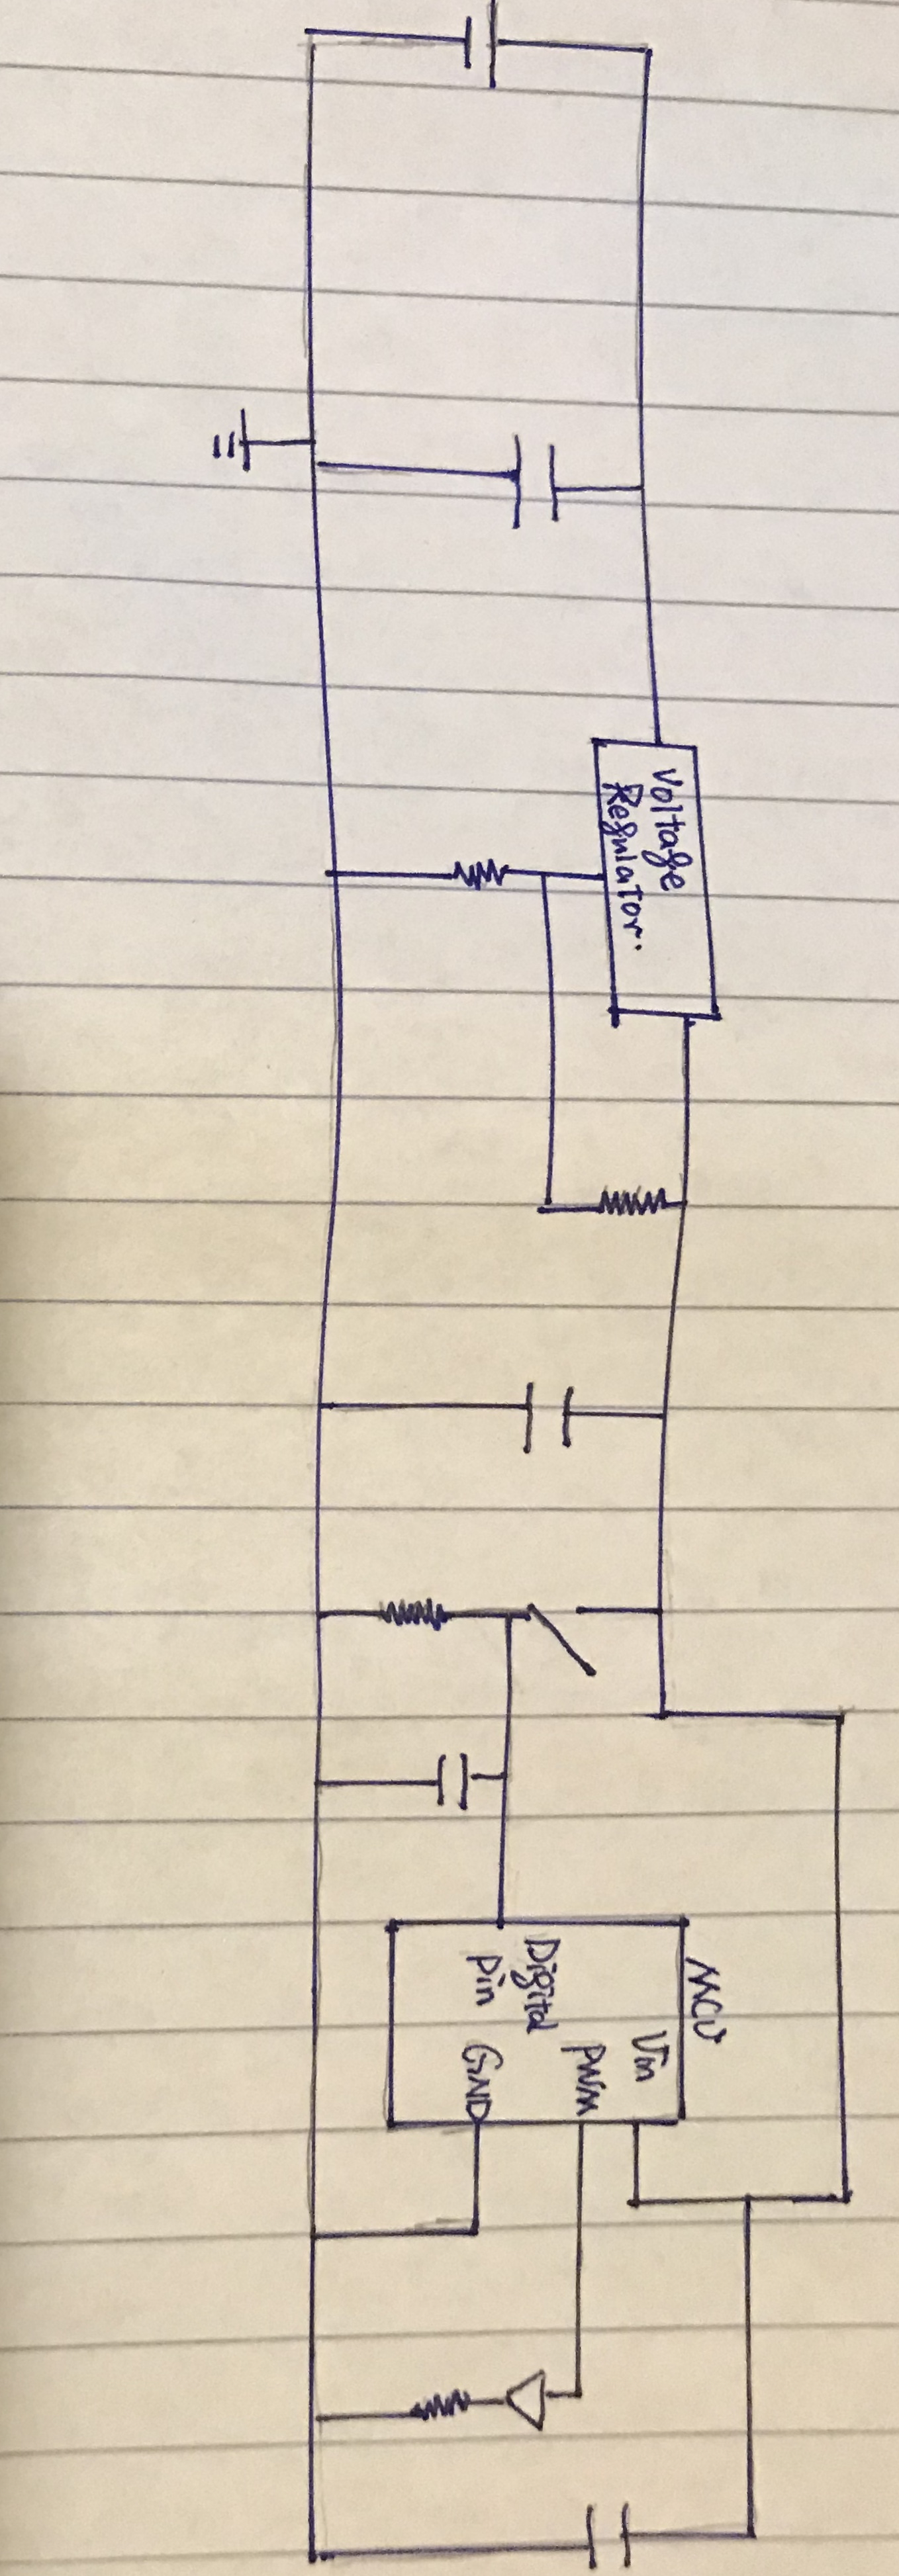 Voltage
Regulator.
MCU
Vin
PWM
Digital
Pin
GND